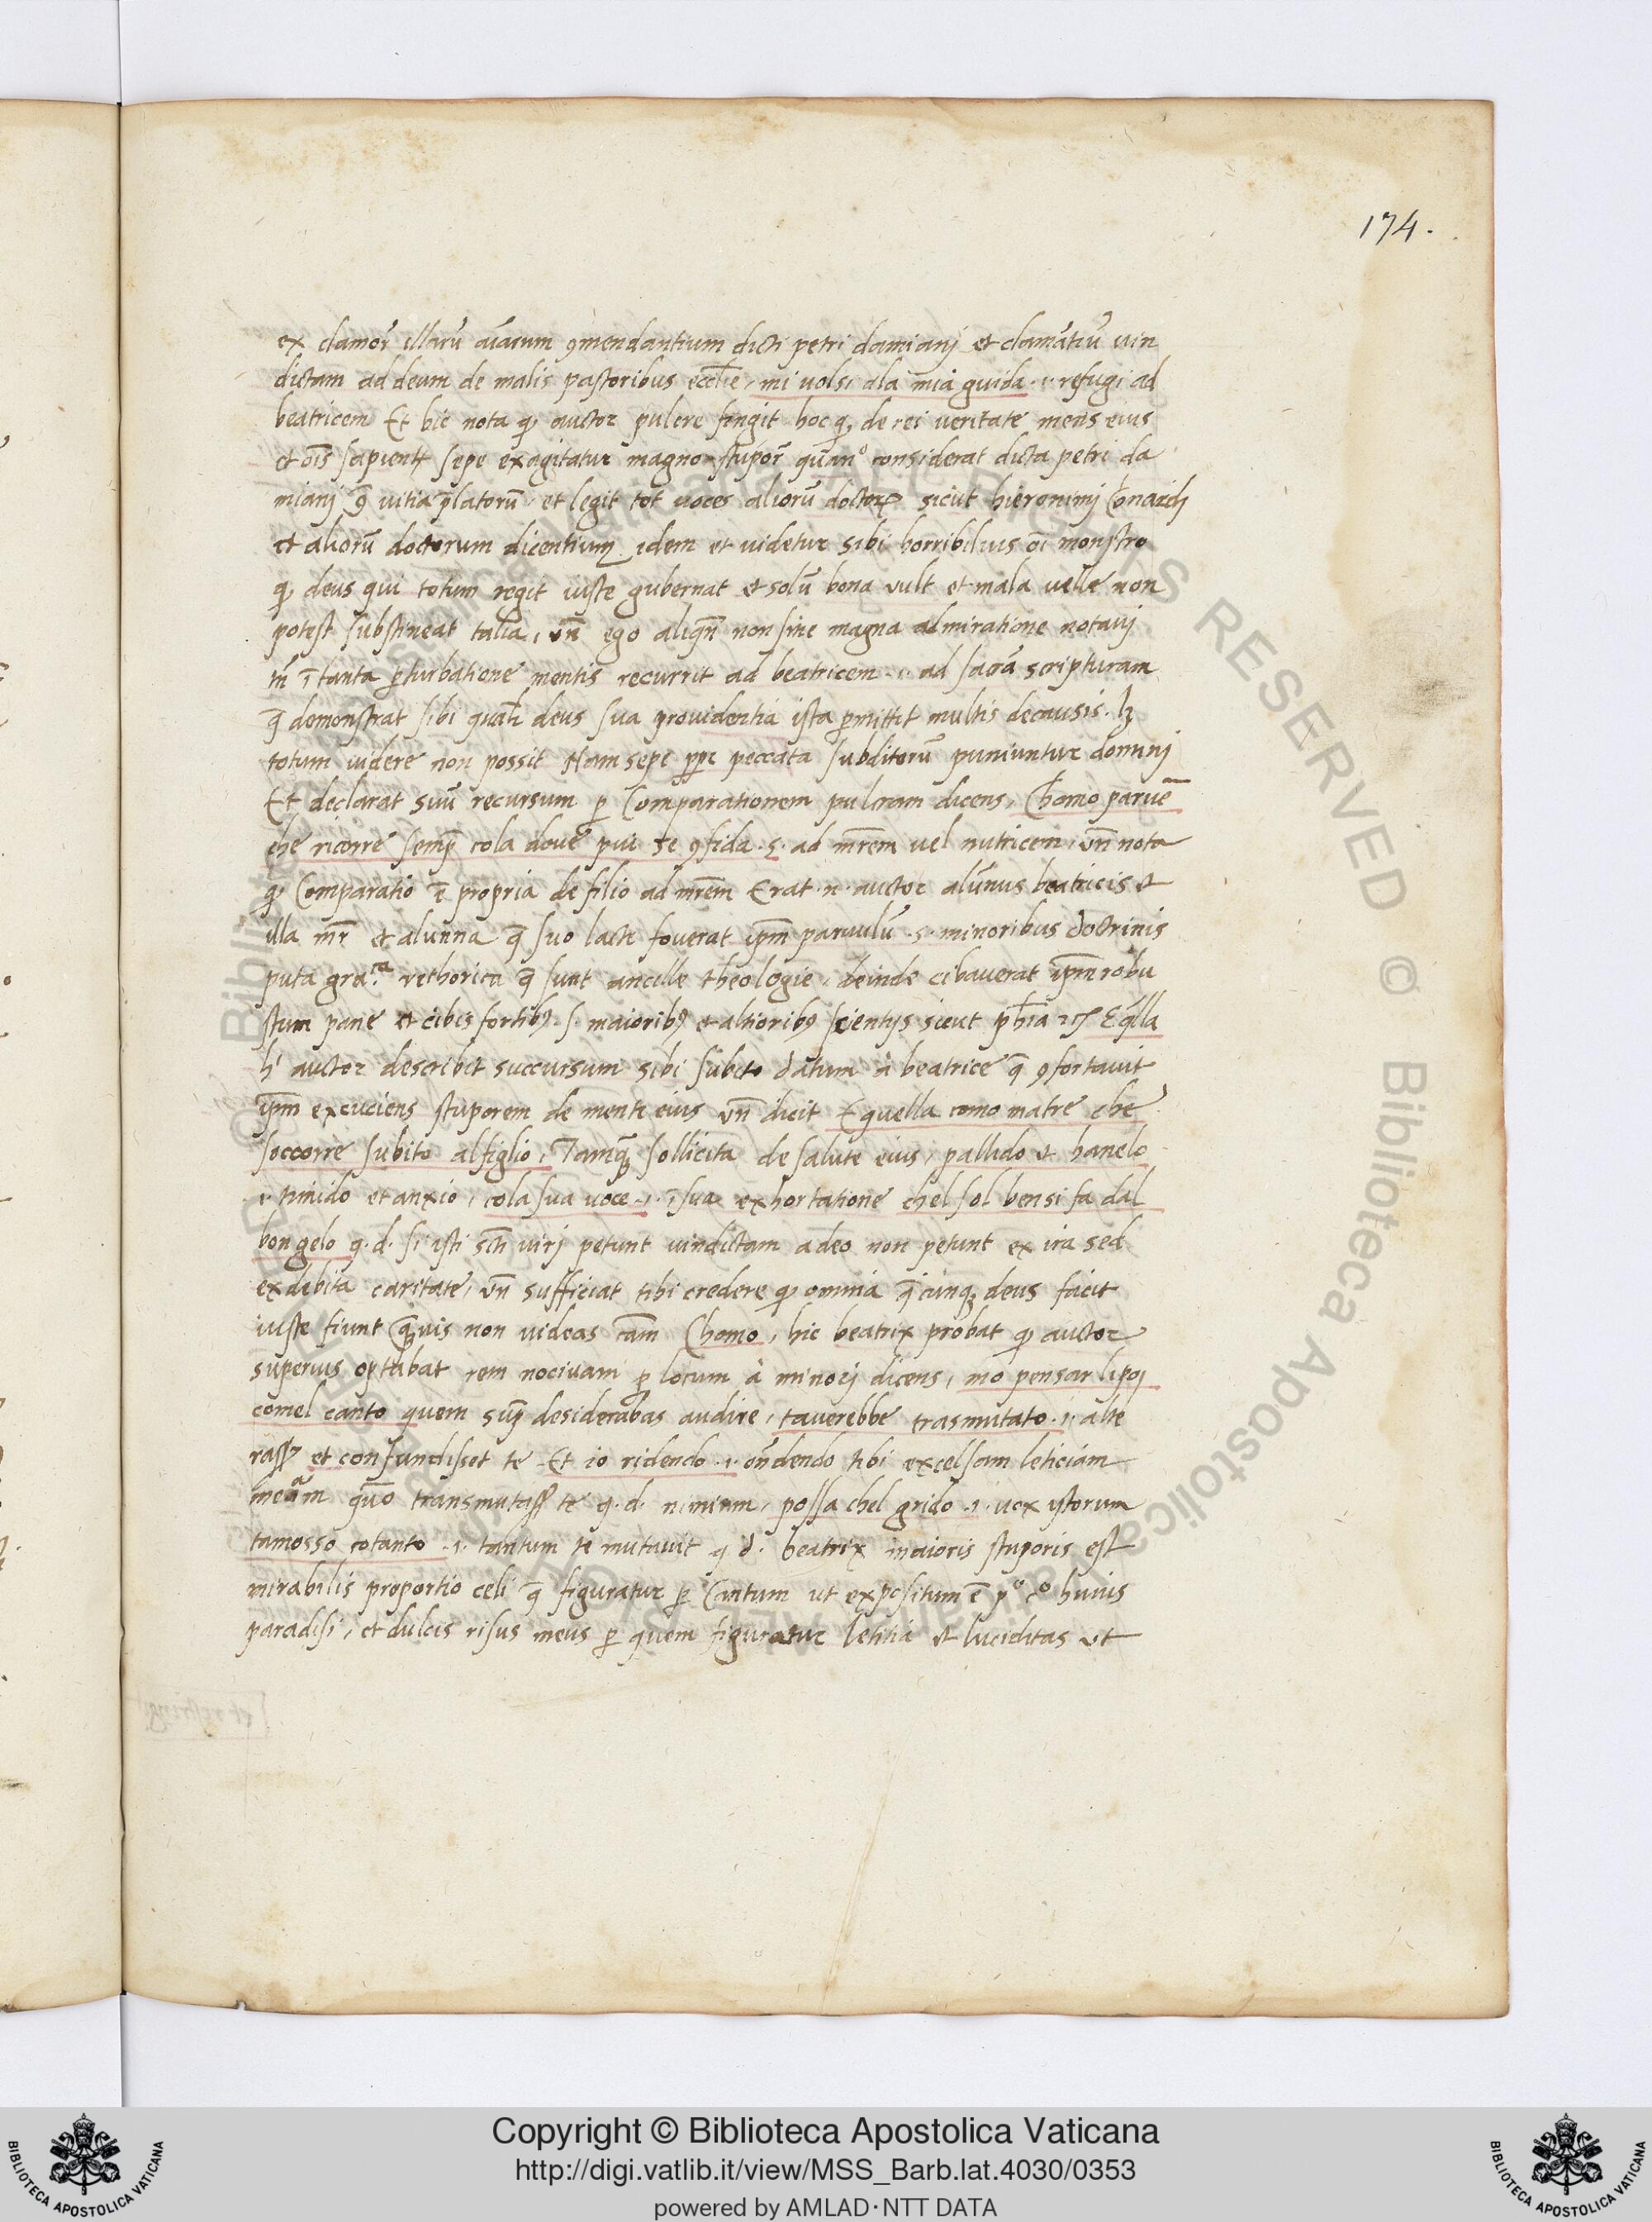 174.
ex clamor̄ illarū aīarum ꝯmendantium dicti petri damianj et clamātiū vin
dictam ad deum de malis pastoribus eccl̄ie, mi volsi ala mia guida .i. refugi ad
beatricem Et hic nota ꝙ auctor pulcre fingit hoc ꝙ de rei veritate mens eius
et oīs sapientꝭ sepe exagitatur magno stupor̄ quan° considerat dicta petri da
mianj ꝯ̄ vitia p̄latorū, et legit tot voces aliorū doctoꝝ sicut hieronimj
et aliorū doctorum dicentium idem et videtur sibi horribilius oī monstro
ꝙ deus qui totum regit iuste gubernat et solū bona vult et mala velle non
potest substineat talia, vn̄ ego aliqn̄ non sine magna admiratione notavj
m̄ ī tanta ꝑturbatione mentis recurrit ad beatricem .i. ad sacrā scripturam
q̄ demonstrat sibi qualr̄ deus sua providentia ista ꝑmittit multis de causis. lꝫ
totum videre non possit Nam sepe ꝓpt̄ peccata subditorū puniuntur dominj
Et declarat suū recursum ꝑ Comparationem pulcram dicens, Chomo parvē
che ricorre semp̄ cola dove piu se ꝯfida .s. ad mr̄em vel nutricem, vn̄ nota
ꝙ Comparatio ē propria de filio ad mr̄em Erat .n. auctor alūnus beatricis et
illa mr̄ et alunna q̄ suo lacte foverat ip̄m parvulū .s. minoribus doctrinis
puta gra.ca rethorica q̄ sunt ancille theologie, deinde cibaverat ip̄m robu
stum pane et cibis fortibꝰ .s. maioribꝰ et altioribꝰ scientijs sicut ph̄ia ⁊c̄ Eq̄lla
hⁱ auctor describit succursum sibi subito datum à beatrice q̄ ꝯfortavit
ip̄m excuciens stuporem de mente eius vn̄ dicit Equella como matre che
soccorre subito alfiglio, Tamqꝫ sollicita de salute eius, pallido et hanelo
.i. timido et anxio, cola sua voce .i. sua exhortatione chel sol bensi fa dal
bongelo q.d. si isti sc̄ti virj petunt vindictam adeo non petunt ex ira sed
ex debita caritate, vn̄ sufficiat tibi credere ꝙ omnia q̄cunqꝫ deus facit
iuste fiunt qꝫvis non videas cām Chomo, hic beatrix probat ꝙ auctor
superius optabat rem nocivam ꝑ locum à minorj dicens, mo pensar lipoj
comel canto quem sup̄ desiderabas audire, taverebbe trasmutato .i. alte
rass; et confundisset te Et io ridendo .i. on̄dendo tibi excelsam leticiam
meam quō transmutass; te q.d. nimium, possa chel grido .i. vox istorum
tamosso cotanto .i. tantum te mutavit q d. beatrix maioris stuporis est
mirabilis proportio celi q̄ figuratur ꝑ Cantum ut expositum ē p° c° huius
paradisi, et dulcis risus meus ꝑ quem figuratur letitia et luciditas ut
Copyright © Biblioteca Apostolica Vaticana
http://digi.vatlib.it/view/MSS_Barb.lat.4030/0353
powered by AMLAD·NTT DATA
BIBLIOTECA APOSTOLICA VATICANA
BIBLIOTECA APOSTOLICA VATICANA